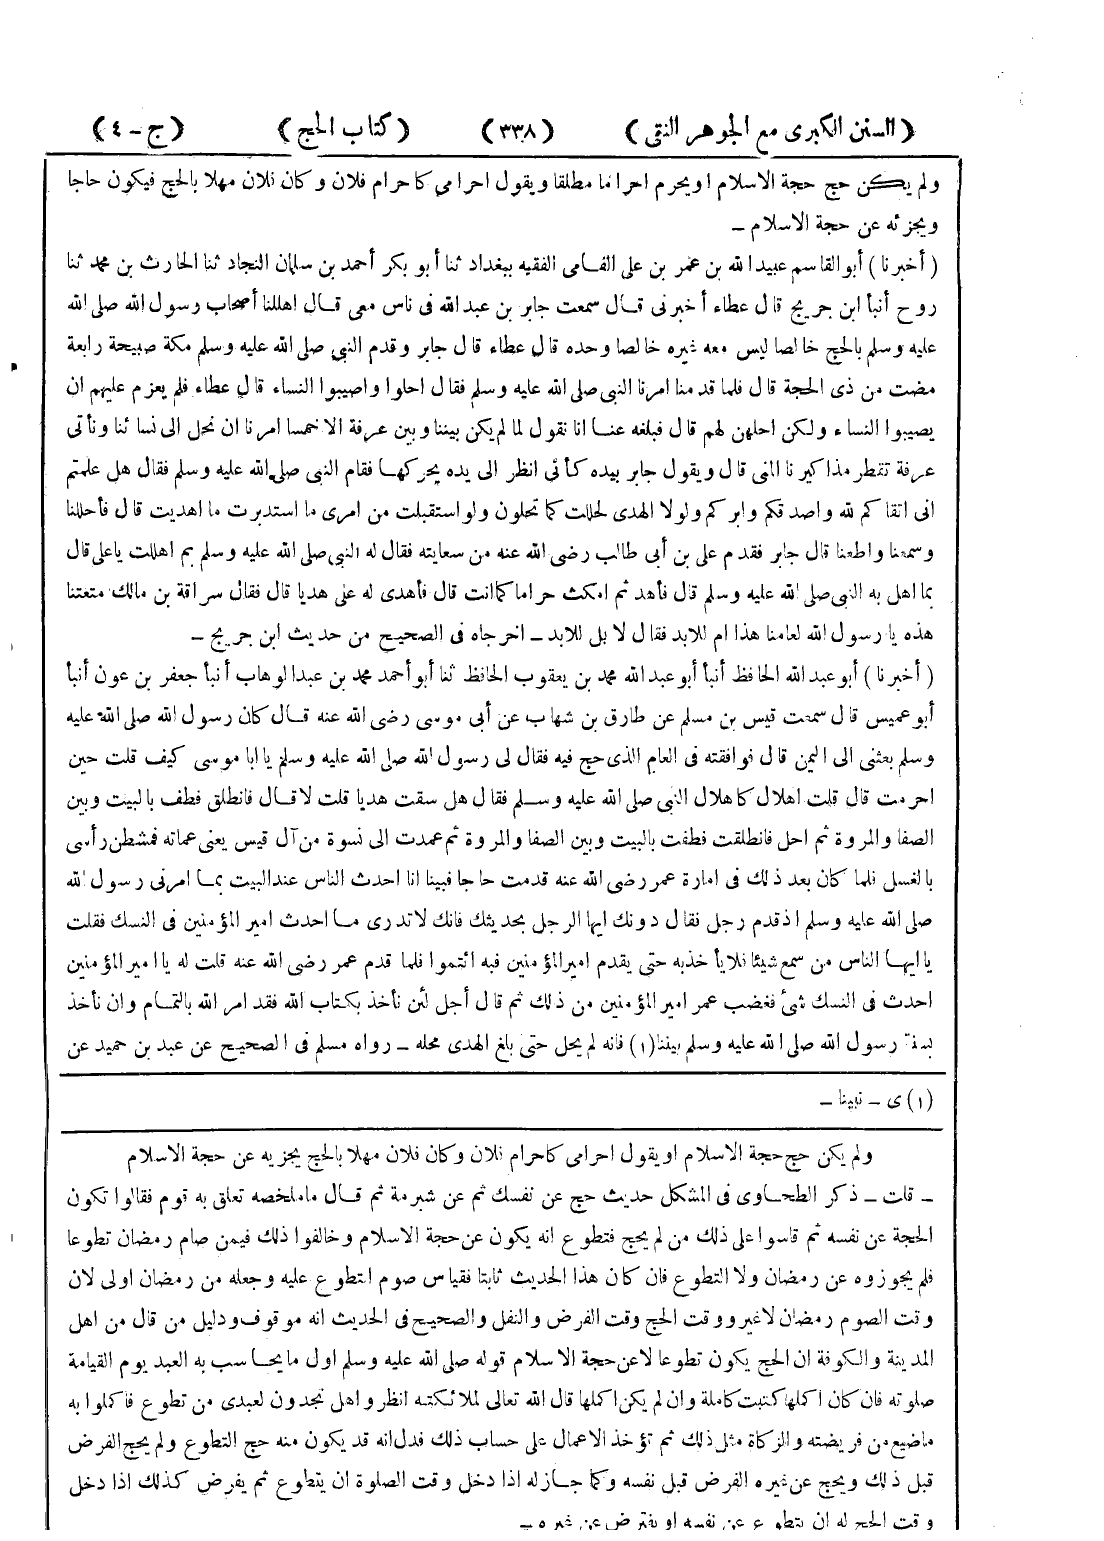 (السنن الكبرى مع الجوهر النقى) (٣٣٨) (كتاب الحج) (ج-٤)
ولم يكن حج حجة الاسلام او يحرم احراما مطلقا ويقول احرامي كاحرام فلان وكان فلان مهلا بالحج فيكون حاجا
ويجزئه عن حجة الاسلام ـ
(أخبرنا) أبو القاسم عبيد الله بن عمر بن على الفامى الفقيه ببغداد ثنا أبو بكر أحمد بن سلمان النجاد ثنا الحارث بن محمد ثنا
روح أنبأ ابن جريج قال عطاء أخبرنى قال سمعت جابر بن عبد الله فى ناس معى قال اهللنا أصحاب رسول الله صلى الله
عليه وسلم بالحج خالصا ليس معه غيره خالصا وحده قال عطاء قال جابر وقدم النبي صلى الله عليه وسلم مكة صبيحة رابعة
مضت من ذى الحجة قال فلما قدمنا امرنا النبي صلى الله عليه وسلم فقال احلوا واصيبوا النساء قال عطاء فلم يعزم عليهم ان
يصيبوا النساء ولكن احلهن لهم قال فبلغه عنا انا نقول لما لم يكن بيننا وبين عرفة الا خمسا امرنا ان نحل الى نسائنا ونأتى
عرفة تقطر مذاكيرنا المنى قال ويقول جابر بيده كأنى انظر الى يده يحركها فقام النبي صلى الله عليه وسلم فقال هل علمتم
انى اتقاكم لله واصدقكم وابركم ولولا الهدى لحللت كما تحلون ولو استقبلت من امرى ما استدبرت ما اهديت قال فأحللنا
وسمعنا واطعنا قال جابر فقدم على بن أبى طالب رضى الله عنه من سعايته فقال له النبي صلى الله عليه وسلم بم اهللت ياعلى قال
بما اهل به النبى صلى الله عليه وسلم قال فأهد ثم امكث حراما كما انت قال فأهدى له على هديا قال فقال سراقة بن مالك متعتنا
هذه يا رسول الله لعامنا هذا ام للابد فقال لا بل للابد ـ اخرجاه فى الصحيح من حديث ابن جريج ـ
(أخبرنا) أبو عبد الله الحافظ أنبأ أبو عبد الله محمد بن يعقوب الحافظ ثنا أبو أحمد محمد بن عبد الوهاب أنبأ جعفر بن عون أنبأ
أبو عميس قال سمعت قيس بن مسلم عن طارق بن شهاب عن أبى موسى رضى الله عنه قال كان رسول الله صلى الله عليه
وسلم بعثنى الى اليمن قال فوافقته فى العام الذى حج فيه فقال لى رسول الله صلى الله عليه وسلم يا ابا موسى كيف قلت حين
احرمت قال قلت اهلال كاهلال النبى صلى الله عليه وسلم فقال هل سقت هديا قلت لا قال فانطلق فطف بالبيت وبين
الصفا والمروة ثم احل فانطلقت فطفت بالبيت وبين الصفا والمروة ثم عمدت الى نسوة من آل قيس يعنى عماته فمشطن رأسى
بالغسل فلما كان بعد ذلك فى امارة عمر رضى الله عنه قدمت حاجا فبينا انا احدث الناس عند البيت بما امرنى رسول الله
صلى الله عليه وسلم اذ قدم رجل فقال دونك ايها الرجل بحديثك فانك لا تدرى ما احدث امير المؤمنين فى النسك فقلت
يا ايها الناس من سمع شيئا فلا يأخذ به حتى يقدم امير المؤمنين فبه ائتموا فلما قدم عمر رضى الله عنه قلت له يا امير المؤمنين
احدث فى النسك شئ فغضب عمر امير المؤمنين من ذلك ثم قال أجل لئن نأخذ بكتاب الله فقد امر الله بالتمام وان نأخذ
بسنة رسول الله صلى الله عليه وسلم بيننا (١) فانه لم يحل حتى بلغ الهدى محله ـ رواه مسلم فى الصحيح عن عبد بن حميد عن
(١) ى ـ نبينا ـ
ولم يكن حج حجة الاسلام او يقول احرامى كاحرام فلان وكان فلان مهلا بالحج يجزيه عن حجة الاسلام
ـ قلت ـ ذكر الطحاوى فى المشكل حديث حج عن نفسك ثم عن شبرمة ثم قال ما ملخصه تعلق به قوم فقالوا تكون
الحجة عن نفسه ثم قاسوا على ذلك من لم يحج فتطوع انه يكون عن حجة الاسلام وخالفوا ذلك فيمن صام رمضان تطوعا
فلم يجوزوه عن رمضان ولا التطوع فان كان هذا الحديث ثابتا فقياس صوم التطوع عليه وجعله من رمضان اولى لان
وقت الصوم رمضان لا غير ووقت الحج وقت الفرض والنفل والصحيح فى الحديث انه موقوف ودليل من قال من اهل
المدينة والكوفة ان الحج يكون تطوعا لا عن حجة الاسلام قوله صلى الله عليه وسلم اول ما يحاسب به العبد يوم القيامة
صلوته فان كان اكملها كتبت كاملة وان لم يكن اكملها قال الله تعالى لملائكته انظروا هل تجدون لعبدى من تطوع فاكملوا به
ما ضيع من فريضته والزكاة مثل ذلك ثم تؤخذ الاعمال على حساب ذلك فدل انه قد يكون منه حج التطوع ولم يحج الفرض
قبل ذلك ويحج عن غيره الفرض قبل نفسه وكما جاز له اذا دخل وقت الصلوة ان يتطوع ثم يفرض كذلك اذا دخل
وقت الحج له ان يتطوع عن نفسه او يفترض عن غيره ـ